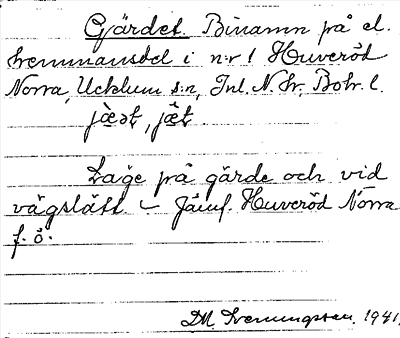 Gärdet. Binamn på el.
hemmansdel i n:r 1 Huveröd
Norra, Ucklum s:n, Inl. N. Hr, Boh. l.
jæ̀ət, jæ̂t.
Läge på gärde och vid
vägslätt. – Jämf. Huveröd Norra
f. ö.
DM. Hermingsson. 1941.